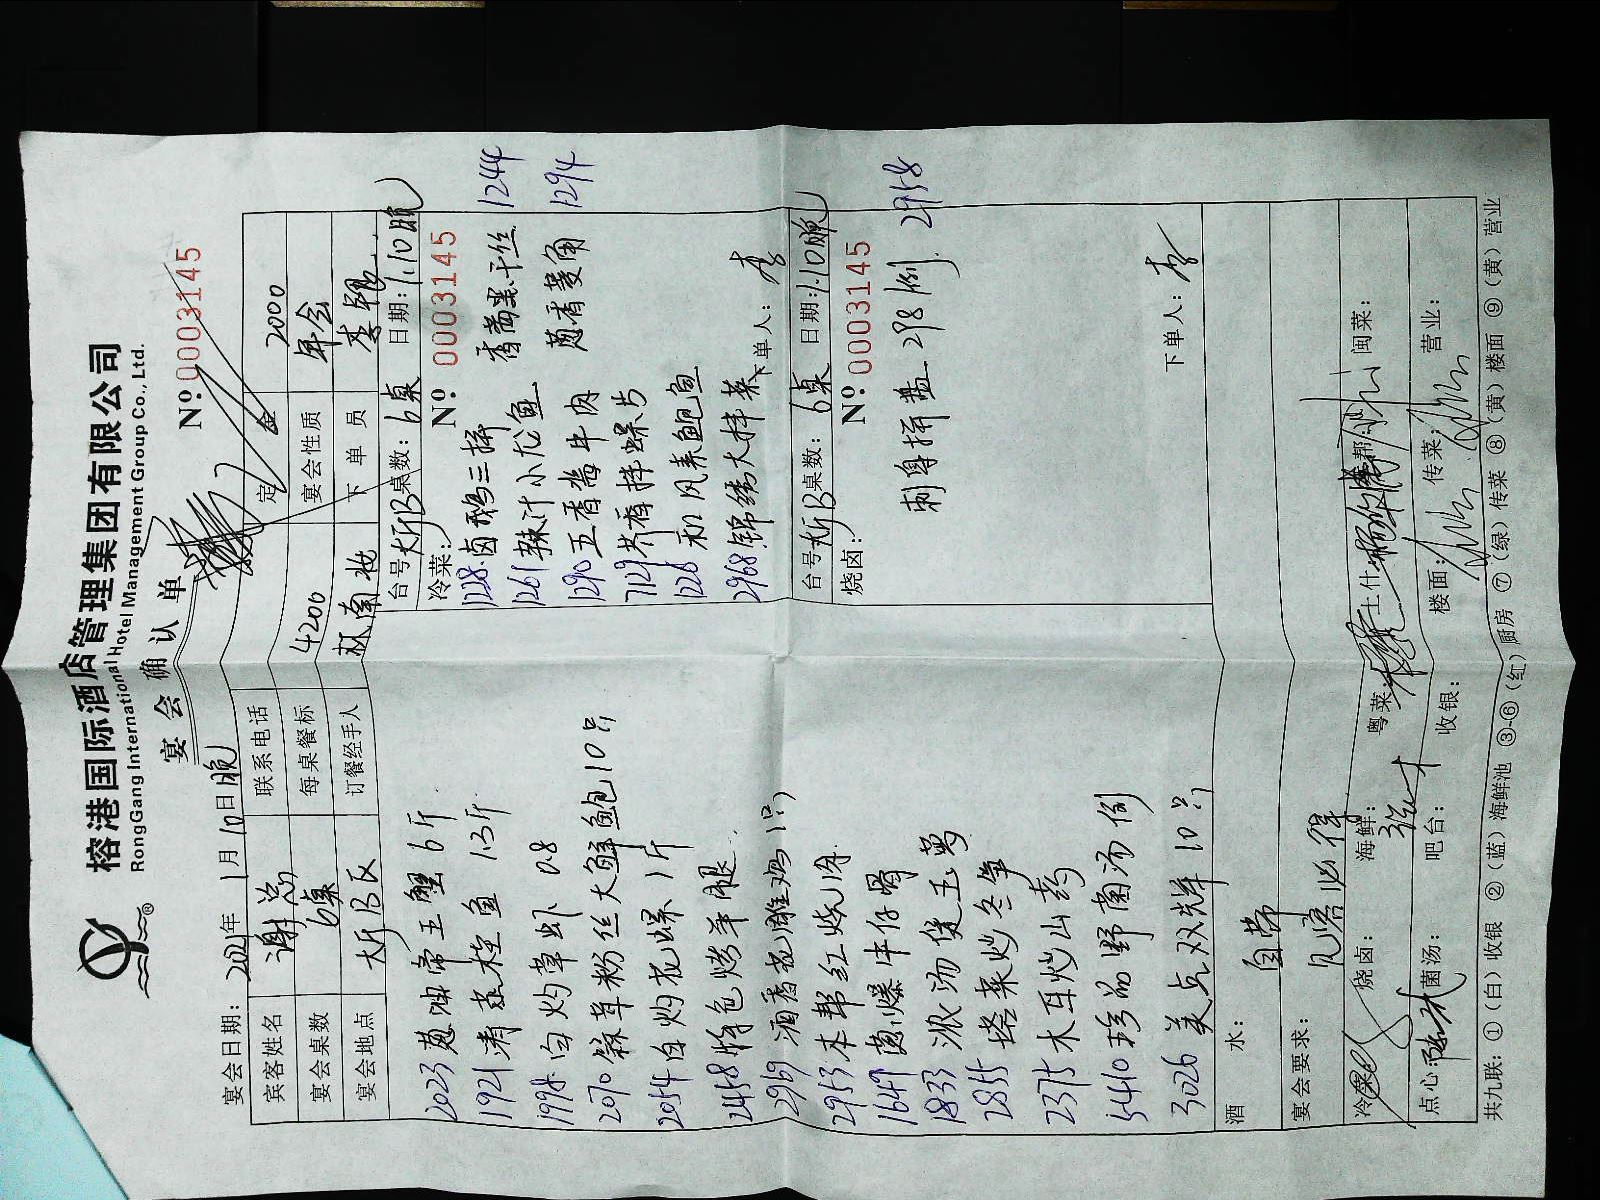 榕港国际酒店管理集团有限公司
RongGang International Hotel Management Group Co., Ltd.
宴会确认单
№ 0003145
宴会日期：2021年1月10日晚
宾客姓名 谢总 联系电话 定金 2000
宴会桌数 6桌 每桌餐标 4200 宴会性质 年会
宴会地点 大厅B区 订餐经手人 林南妆 下单员 李
2023 葱油帝王蟹 6斤
1921 清蒸桂鱼 13斤
1998 白灼草虾 0.8
2070 蒜茸粉丝大鲜鲍 10只
2054 白灼花螺 1斤
2458 特色烤羊腿
2969 酒香花雕鸡 1只
2953 本帮红烧
1649 葱爆牛仔骨
1833 浓汤煲玉
2855 塔菜炒冬笋
2375 木耳炒山药
5410 珍品野菌汤 例
3026 美点双辉 10只
台号：大厅B 桌数：6桌 日期：1.10晚
冷菜： № 0003145
1228 卤鹅三拼 香干丝 1244
1261 辣汁小龙鱼 葱香菱角 1294
1290 五香酱牛肉
7129 芥香拌螺片
1226 和风素鲍鱼
2968 锦绣大拌菜 下单人：李
台号：大厅B 桌数：6桌 日期：1.10晚
烧卤： № 0003145
刺身拼盘 298/例 2958
下单人：李
酒水： 自带
宴会要求： 见客必得
冷菜： 烧卤： 海鲜： 粤菜： 士什： 本帮： 闽菜：
点心： 菌汤： 吧台： 收银： 楼面： 传菜： 营业：
共九联：①（白）收银 ②（蓝）海鲜池 ③-⑥（红）厨房 ⑦（绿）传菜 ⑧（黄）楼面 ⑨（黄）营业